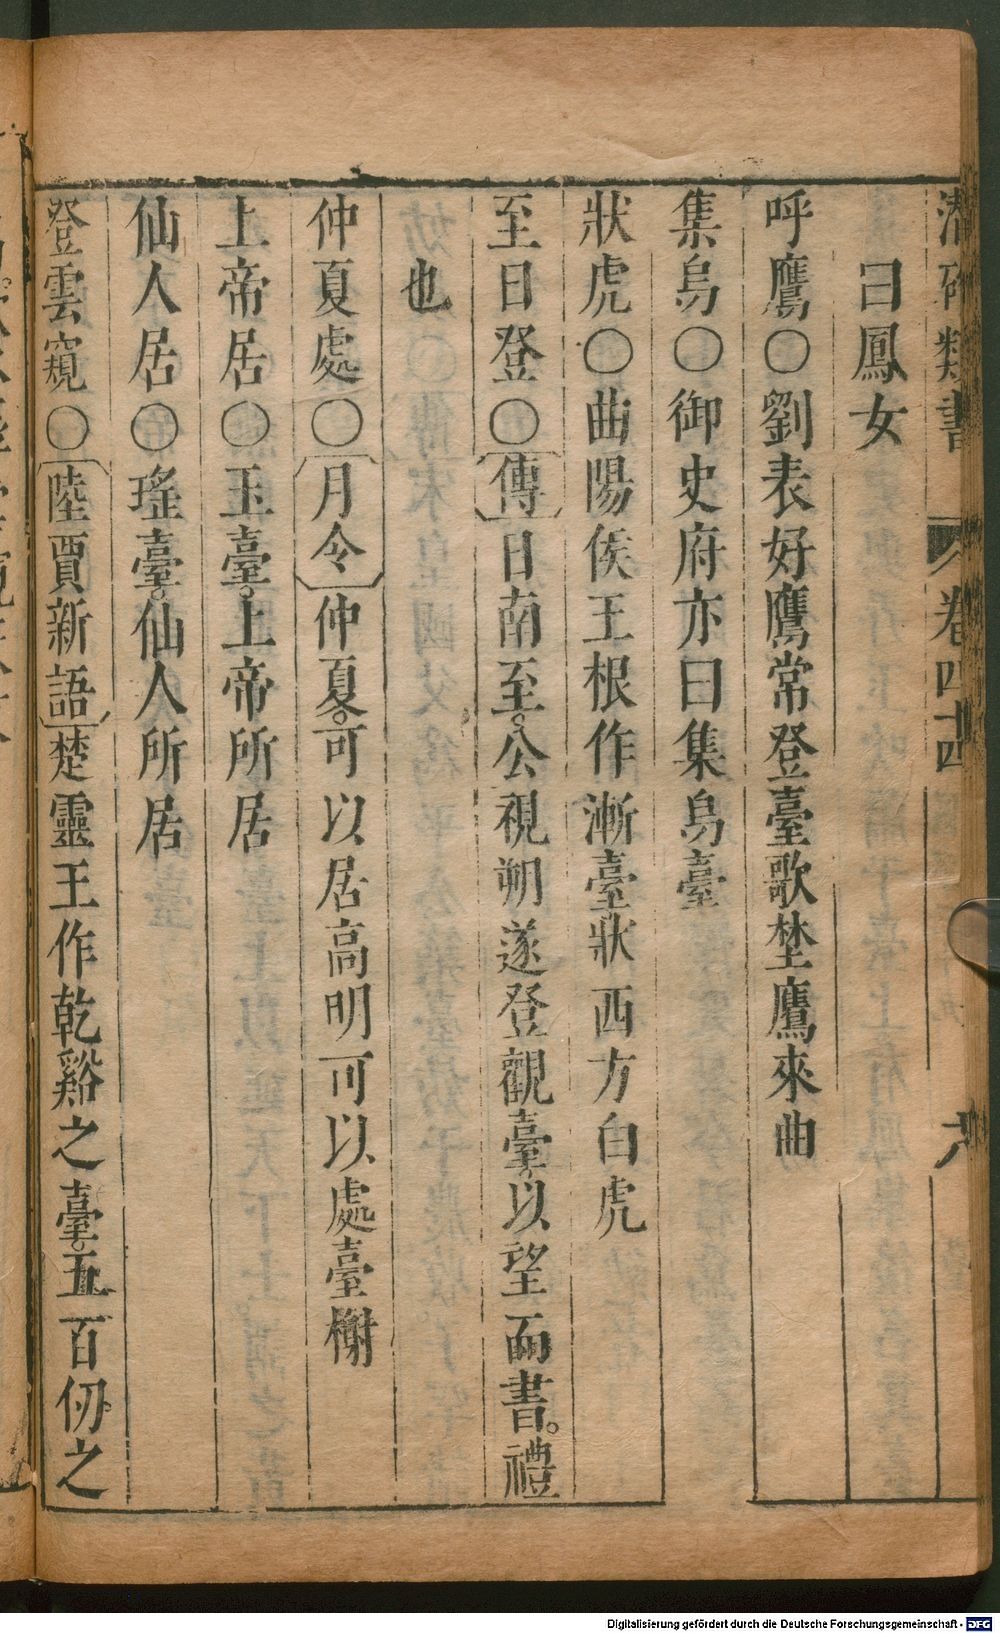 潛確類書 卷四十四 六
曰鳳女
呼鷹○劉表好鷹常登臺歌埜鷹來曲
集烏○御史府亦曰集烏臺
狀虎○曲陽侯王根作漸臺狀西方白虎
至日登○傳日南至。公視朔遂登觀臺。以望而書。禮
也
仲夏處○月令仲夏。可以居高明可以處臺榭
上帝居○玉臺。上帝所居
仙人居○瑤臺。仙人所居
登雲窺○陸賈新語楚靈王作乾谿之臺。五百仞之
Digitalisierung gefördert durch die Deutsche Forschungsgemeinschaft - DFG